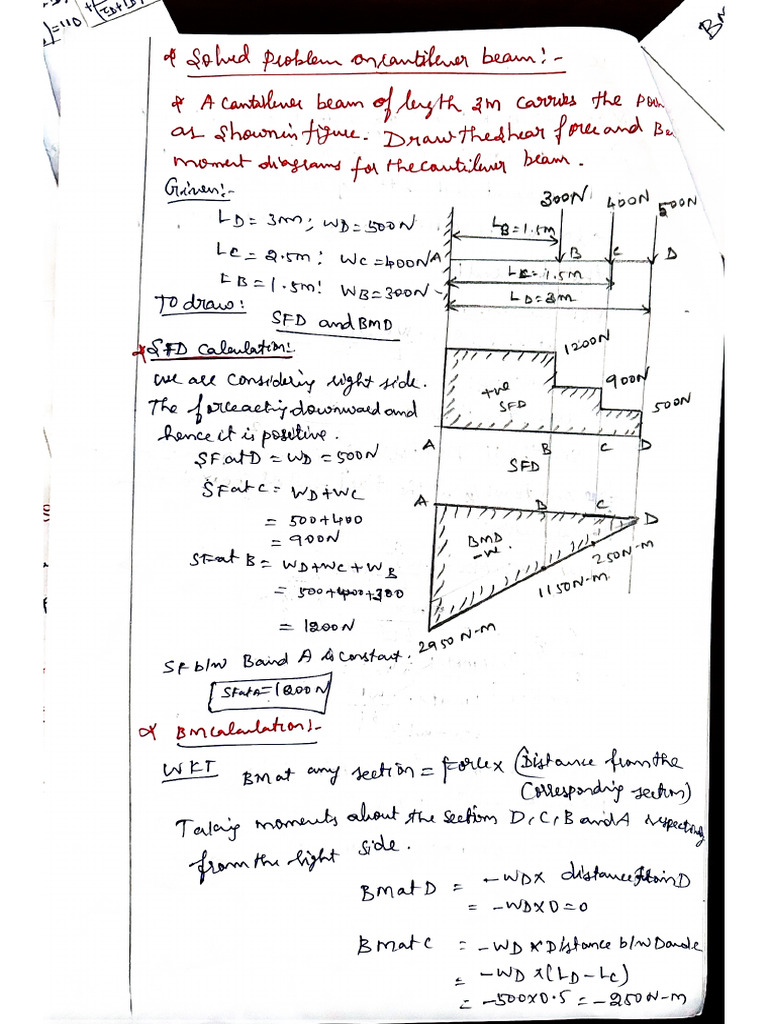 * Solved Problem on cantilever beam:-
* A cantilever beam of length 3m carries the
as shown in figure. Draw the shear force and
moment diagrams for the cantilever beam.
Given:-
LD = 3m; WD = 500N
LC = 2.5m; WC = 400N
LB = 1.5m! WB = 300N
To draw:
SFD and BMD
300N 400N 500N
LB = 1.5m
A B C D
LC = 1.5m
LD = 3m
* SFD Calculation:
we are considering right side.
The force acting downward and
hence it is positive.
SF at D = WD = 500N
SF at C = WD + WC
= 500 + 400
= 900N
SF at B = WD + WC + WB
= 500 + 400 + 300
= 1200N
SF b/w B and A is constant.
SF at A = 1200N
1200N
900N
500N
+ve
SFD
A B C D
SFD
A B C D
BMD
-ve.
250N-m
1150N-m.
2950N-m
* BM calculations:-
WKT BM at any section = Force x (Distance from the
Corresponding section)
Taking moments about the section D, C, B and A
from the right side.
BM at D = -WD x distance from D
= -WD x 0 = 0
BM at C = -WD x Distance b/w D and C
= -WD x (LD - LC)
= -500 x 0.5 = -250N-m